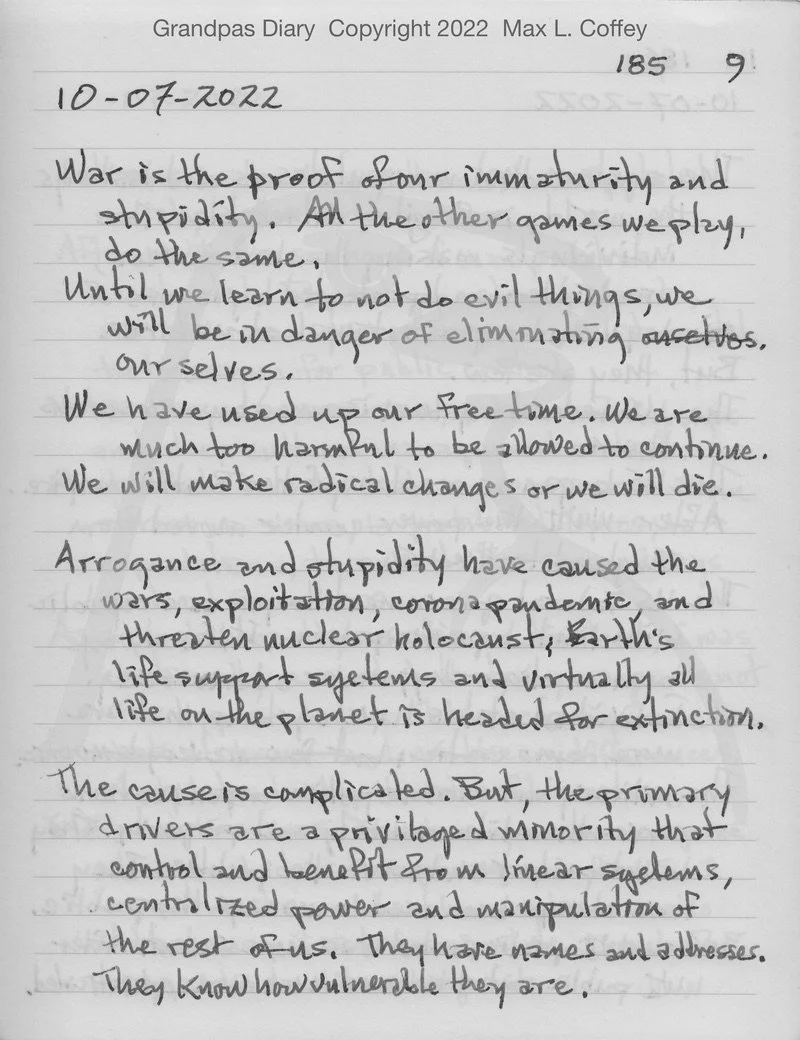 Grandpas Diary Copyright 2022 Max L. Coffey
185 9
10-07-2022
War is the proof of our immaturity and
stupidity. All the other games we play,
do the same.
Until we learn to not do evil things, we
will be in danger of eliminating ouselves.
ourselves.
We have used up our free time. We are
much too harmful to be allowed to continue.
We will make radical changes or we will die.
Arrogance and stupidity have caused the
wars, exploitation, corona pandemic, and
threaten nuclear holocaust; Earth's
life support systems and virtually all
life on the planet is headed for extinction.
The cause is complicated. But, the primary
drivers are a privilaged minority that
control and benefit from linear systems,
centralized power and manipulation of
the rest of us. They have names and addresses.
They know how vulnerable they are.